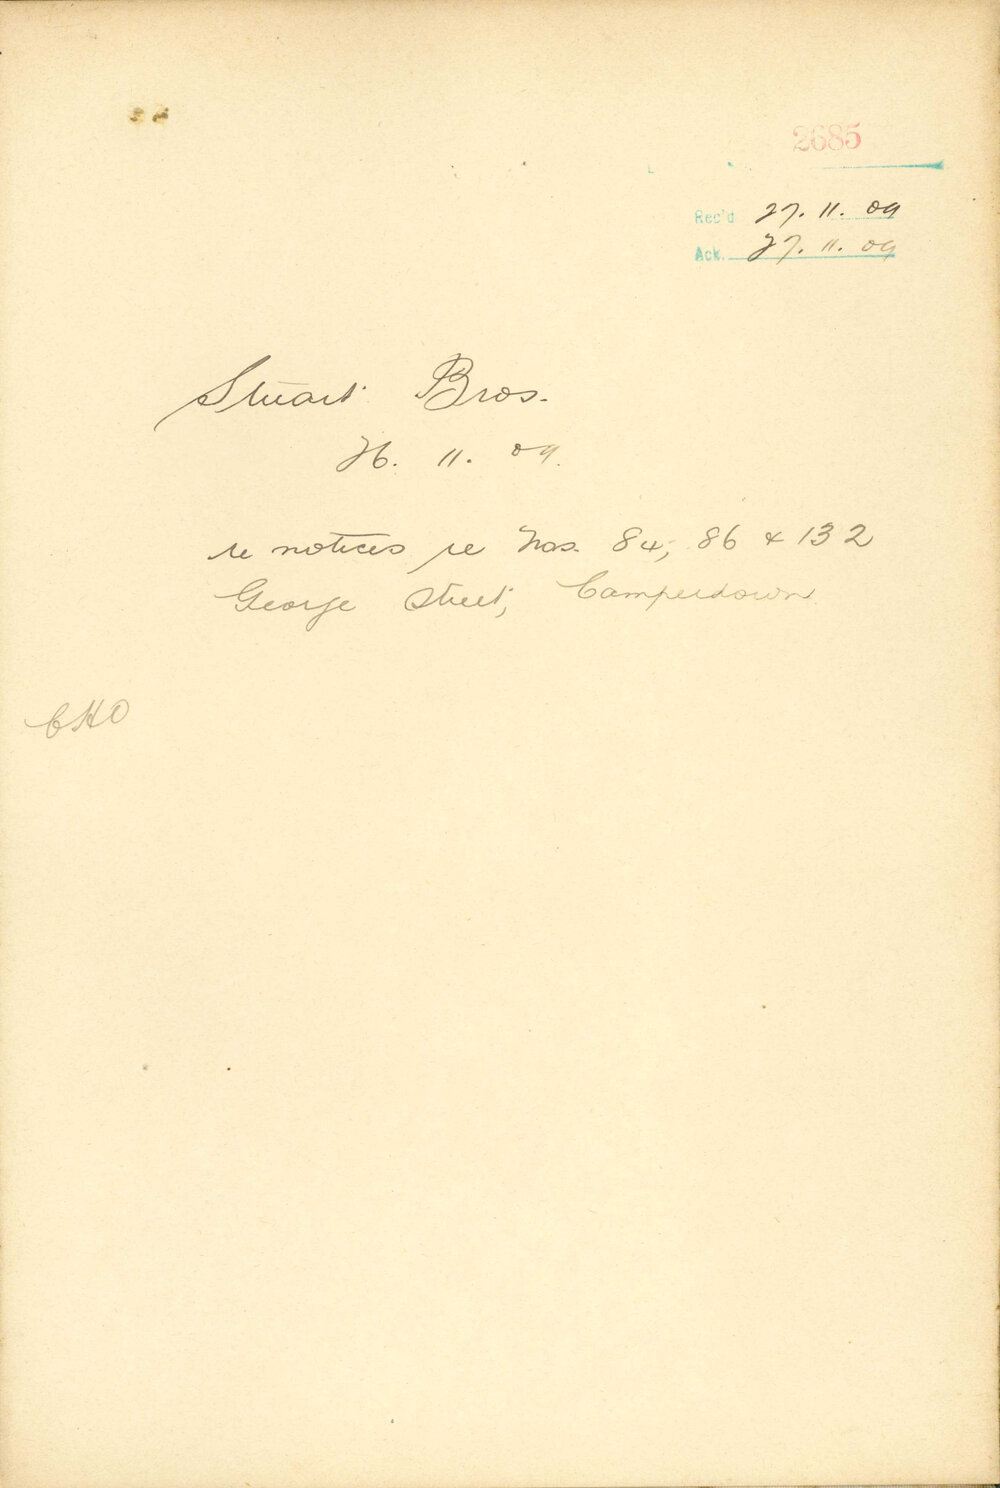 2685
Rec'd 27. 11. 09
Ack. 27. 11. 09
Stuart Bros.
26. 11. 09.
re notices re Nos. 84, 86 & 132
George Street, Camperdown
CHO